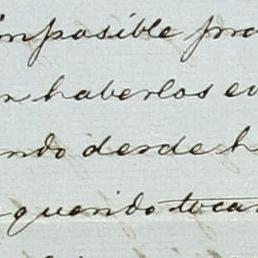 imposible pro
n haberlos ev
ndo desde h
querido toca